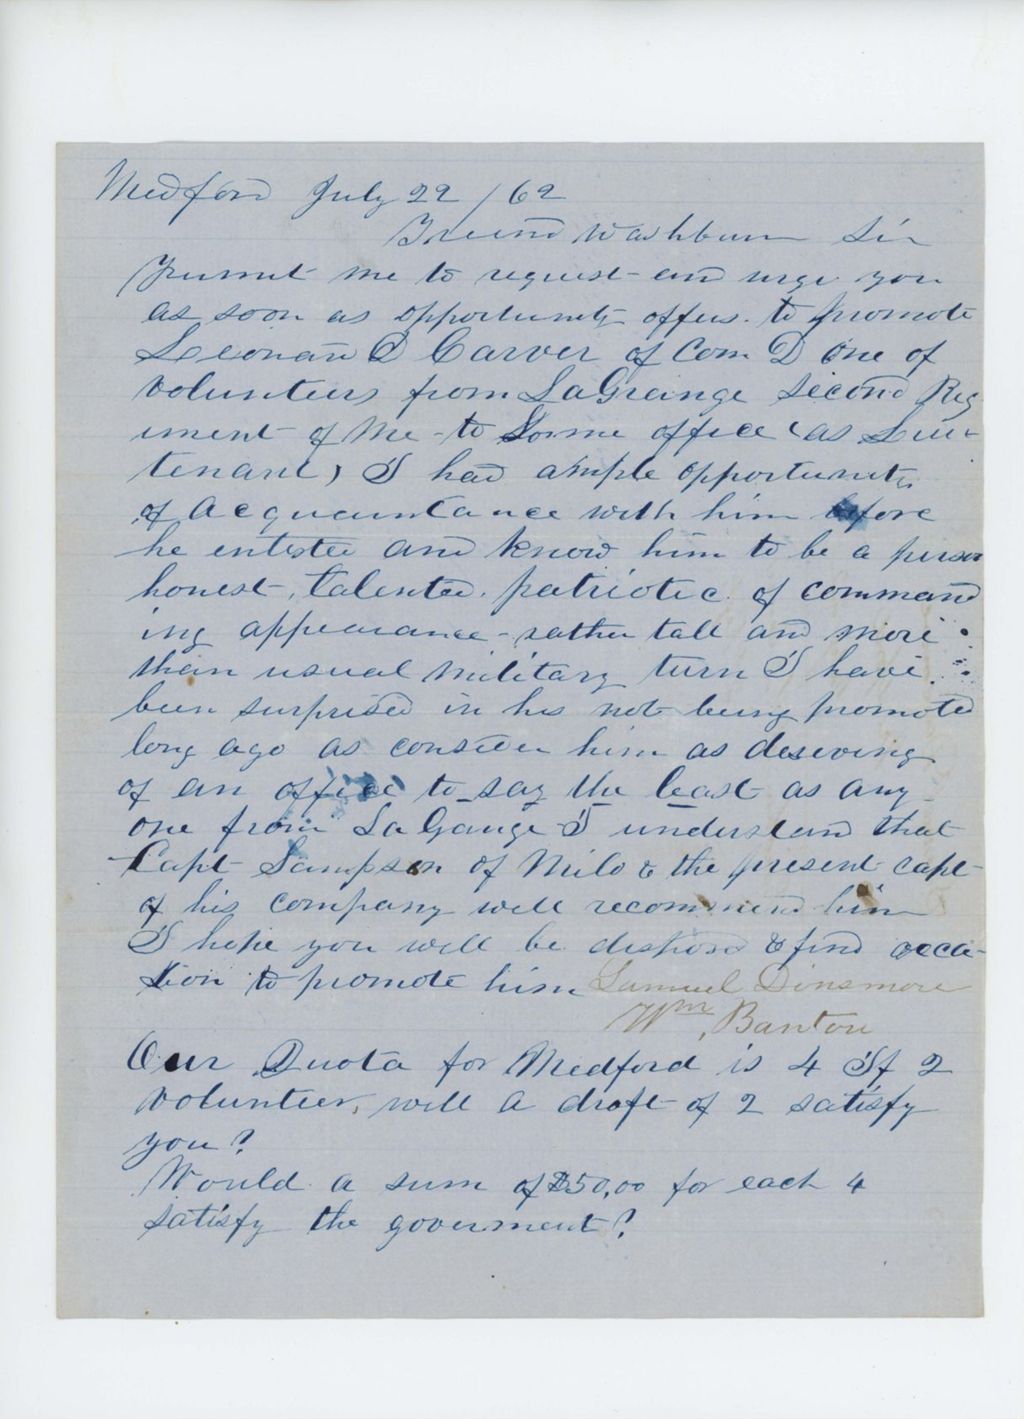 Medford July 22 / 62
Friend Washburn Sir
Permit me to request and urge you
as soon as opportunity offers to promote
Leonard D Carver of Com D one of
volunteers from LaGrange second Reg
iment of Me - to some office (as Lieu-
tenant) I had ample opportunity
of acquaintance with him before
he enlisted and know him to be a person
honest, talented, patriotic of command
ing appearance - rather tall and more
than usual military turn I have
been surprised in his not being promoted
long ago as consider him as deseving
of an office to say the least as any
one from LaGange I understand that
Capt Sampson of Milo & the present capt
of his company will recommend him
I hope you will be disposed & find occa-
sion to promote him Samuel Dinsmore
Wm, Banton
Our Quota for Medford is 4 If 2
volunteer, will a draft of 2 satisfy
you?
Would a sum of $50,00 for each 4
satisfy the goverment?